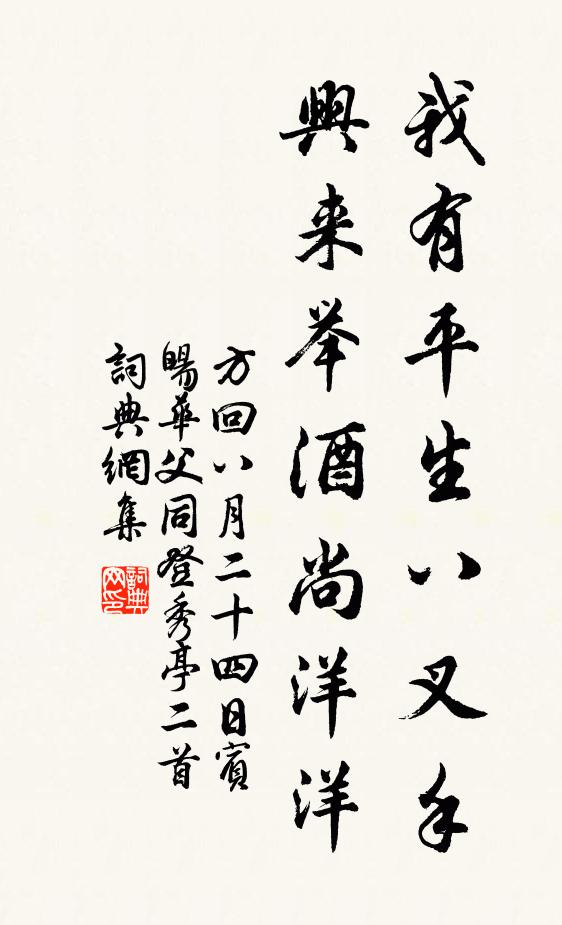 我有平生八叉手
興来举酒尚洋洋
方回八月二十四日賓
暘華父同登秀亭二首
詞典網集
詞典
网印